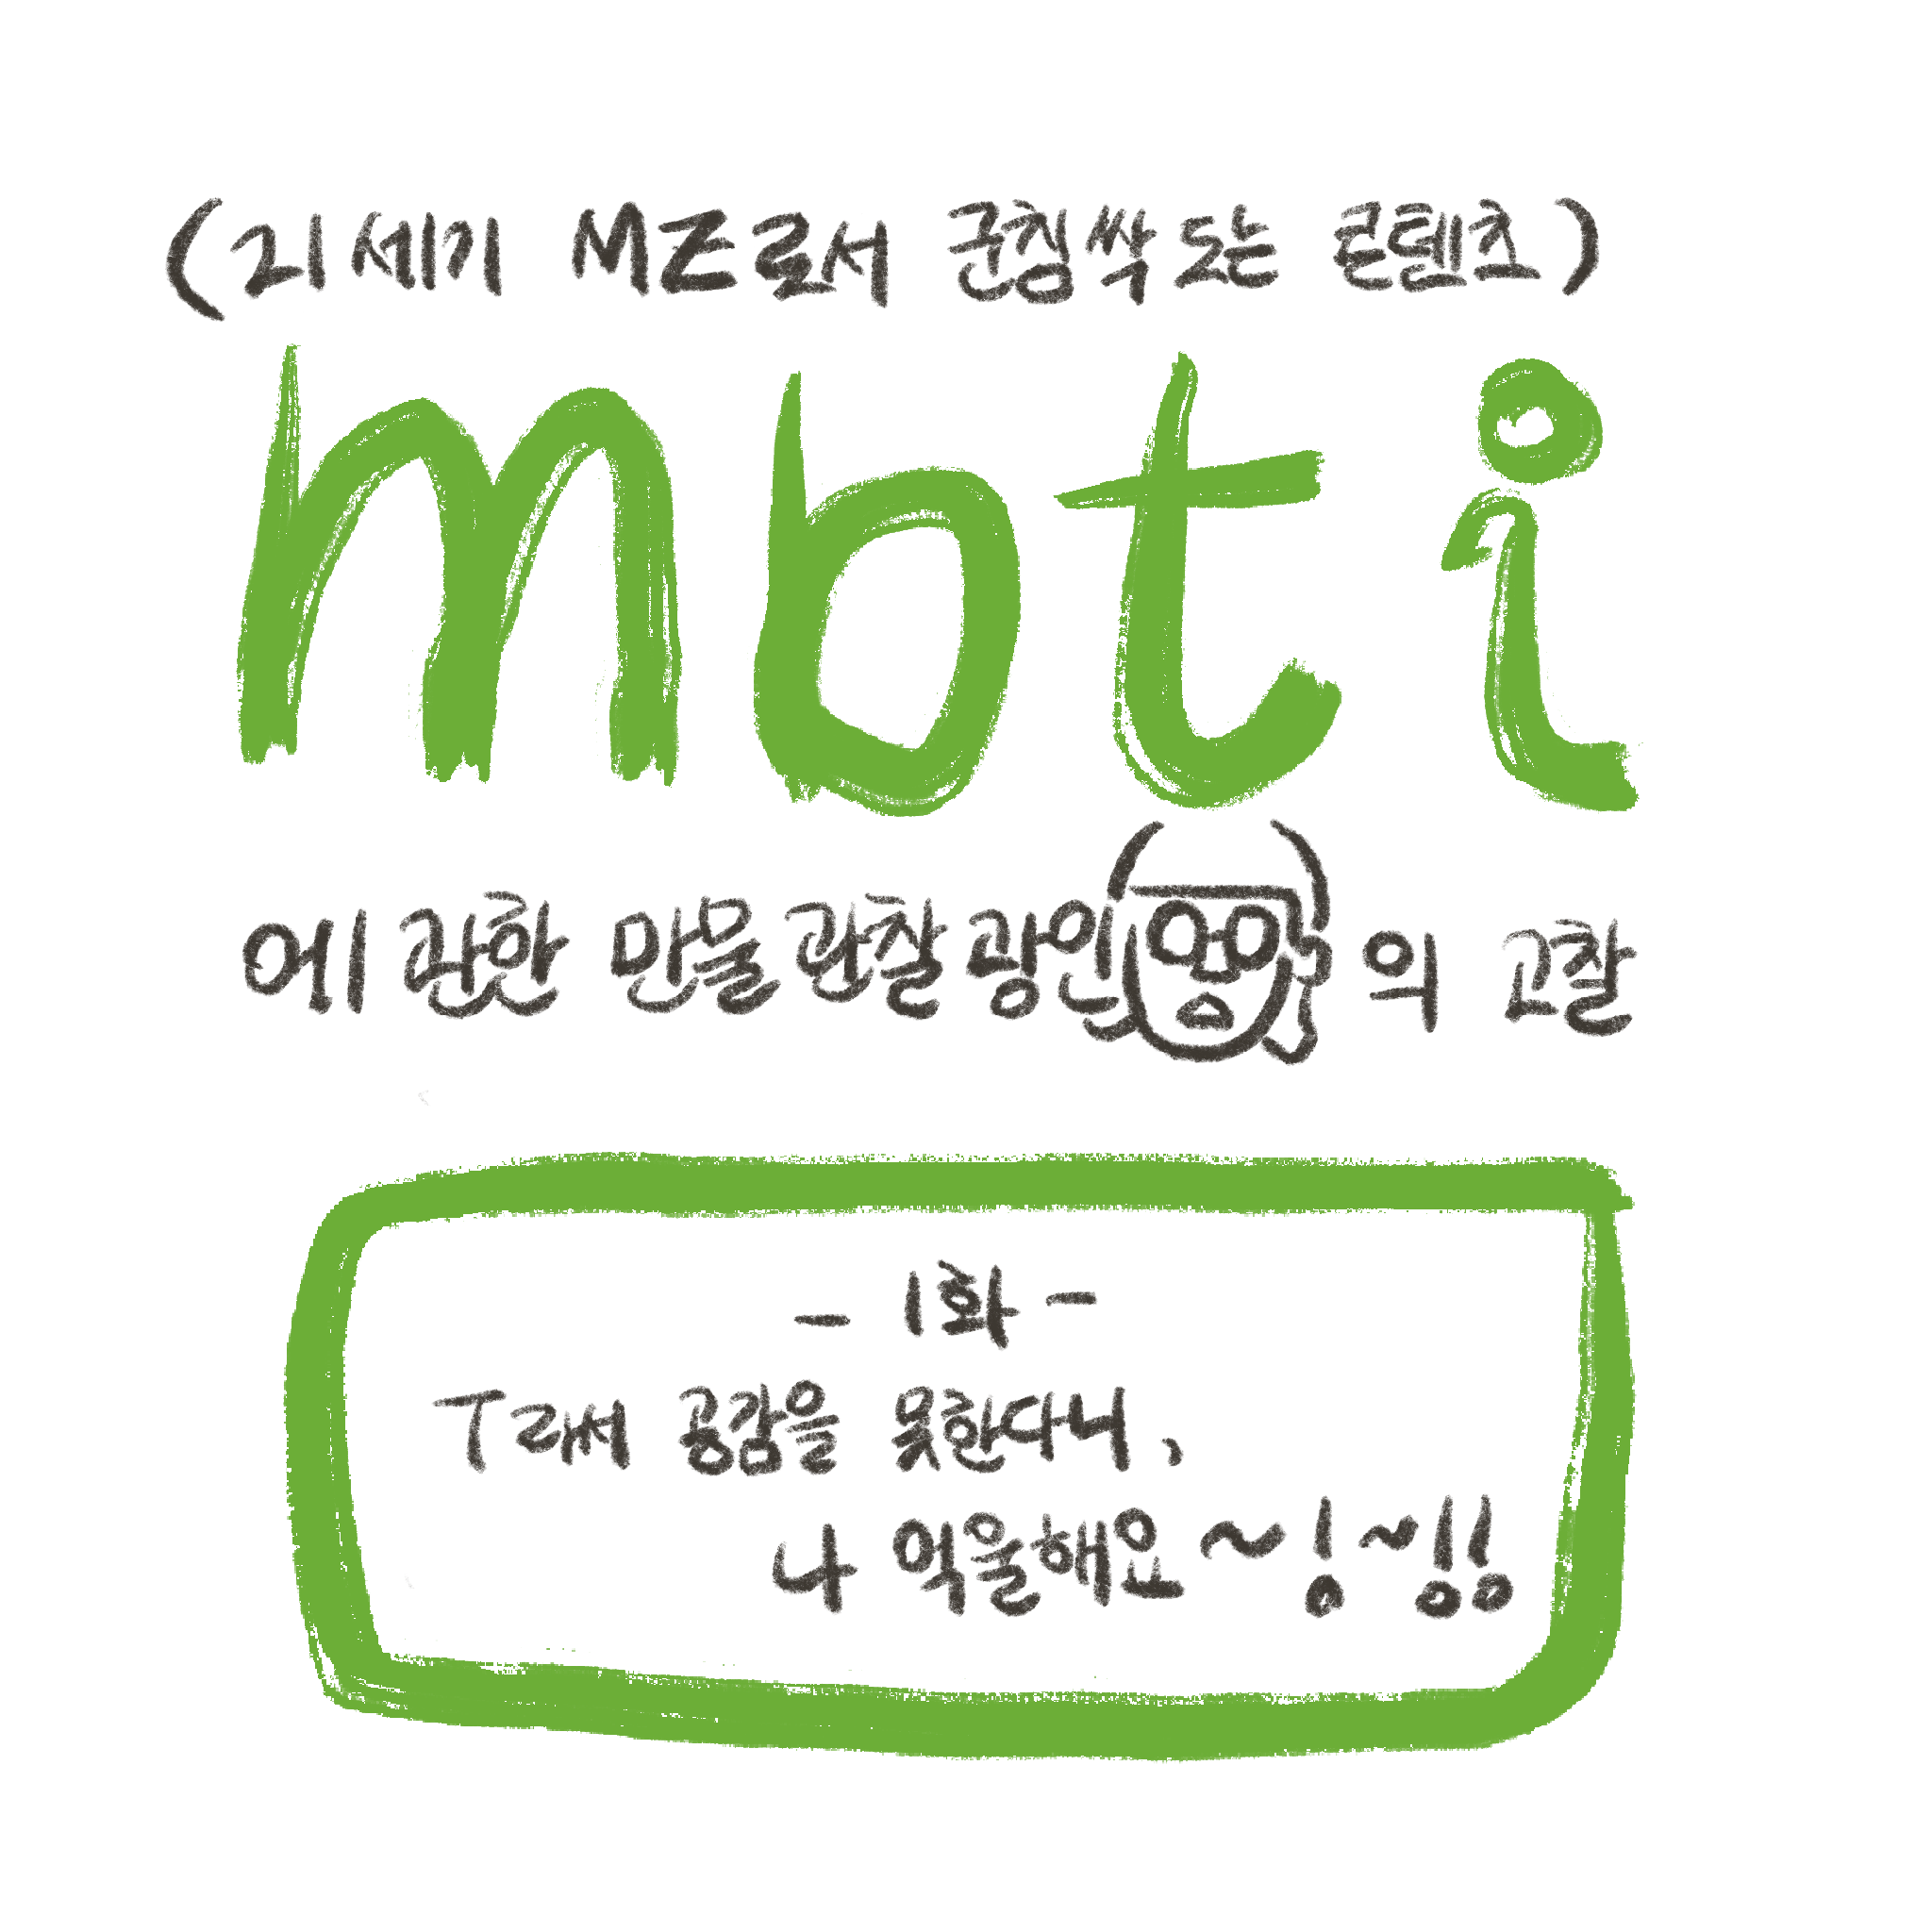 (21세기 MZ로서 군침싹도는 콘텐츠)
mbti
에 관한 만물관찰광인의 고찰
- 1화 -
T라서 공감을 못한다니,
나 억울해요~!~!!